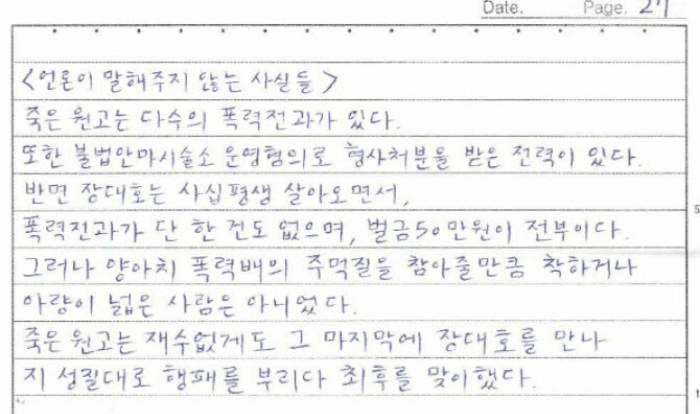 Date. Page. 27
<언론이 말해주지 않는 사실들>
죽은 원고는 다수의 폭력전과가 있다.
또한 불법안마시술소 운영혐의로 형사처분을 받은 전력이 있다.
반면 장대호는 사십평생 살아오면서,
폭력전과가 단 한 건도 없으며, 벌금50만원이 전부이다.
5
그러나 양아치 폭력배의 주먹질을 참아줄만큼 착하거나
아량이 넓은 사람은 아니었다.
죽은 원고는 재수없게도 그 마지막에 장대호를 만나
지 성질대로 행패를 부리다 최후를 맞이했다.